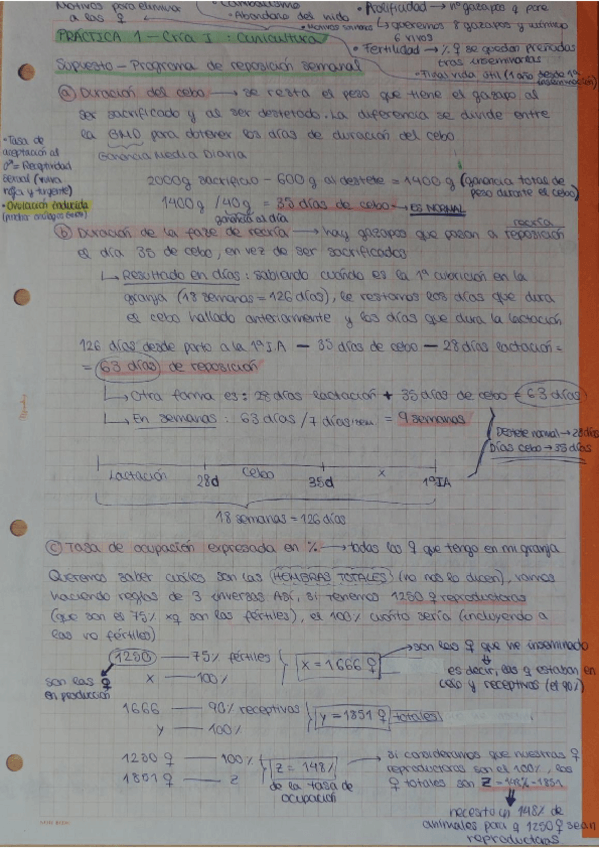 Motivos para eliminar a las ♀
• Canibalismo
• Abandono del nido
• Prolificidad → nº gazapos q pare
↳ queremos 8 gazapos y mínimo 6 vivos
• Fertilidad → % ♀ se quedan preñadas tras inseminarlas
PRÁCTICA 1 – Cría I : Cunicultura
Supuesto – Programa de reposición semanal
• Fin de vida útil (1 año desde 1ª
a) Duración del cebo → se resta el peso que tiene el gazapo al
ser sacrificado y al ser destetado. La diferencia se divide entre
la GMD para obtener los días de duración del cebo
Ganancia Media Diaria
• Tasa de aceptación al ♂ = Receptividad sexual (vulva roja y turgente)
• Ovulación inducida
2000g sacrificio – 600 g al destete = 1400 g (ganancia total de peso durante el cebo)
1400 g / 40 g = 35 días de cebo → ES NORMAL
ganancia al día
recría
b) Duración de la fase de recría → hay gazapos que pasan a reposición
el día 35 de cebo, en vez de ser sacrificados
↳ Resultado en días: sabiendo cuándo es la 1ª cubrición en la
granja (18 semanas = 126 días), le restamos los días que dura
el cebo hallado anteriormente y los días que dura la lactación
126 días desde parto a la 1ª I.A – 35 días de cebo – 28 días lactación =
= 63 días de reposición
↳ Otra forma es: 28 días lactación + 35 días de cebo = 63 días
↳ En semanas: 63 días / 7 días/sem = 9 semanas
Destete normal → 28 días
Días cebo → 35 días
Lactación 28d Cebo 35d x 1ª IA
18 semanas = 126 días
c) Tasa de ocupación expresada en % → todas las ♀ que tengo en mi granja
Queremos saber cuáles son las HEMBRAS TOTALES (no nos lo dicen), vamos
haciendo reglas de 3 inversas. Así, si tenemos 1250 ♀ reproductoras
(que son el 75% xq son las fértiles), el 100% cuánto sería (incluyendo a
las no fértiles)
1250 — 75% fértiles
x — 100%
x = 1666 ♀
son las ♀ en producción
→ son las ♀ que he inseminado
es decir, las ♀ estaban en celo y receptivas (el 90%)
1666 — 90% receptivas
y — 100%
y = 1851 ♀ totales
1250 ♀ — 100%
1851 ♀ — z
z = 148%
de la tasa de ocupación
si consideramos que nuestras ♀
reproductoras son el 100%, las
♀ totales son z = 148% = 1851
necesito un 148% de
animales para q 1250 ♀ sean
reproductoras